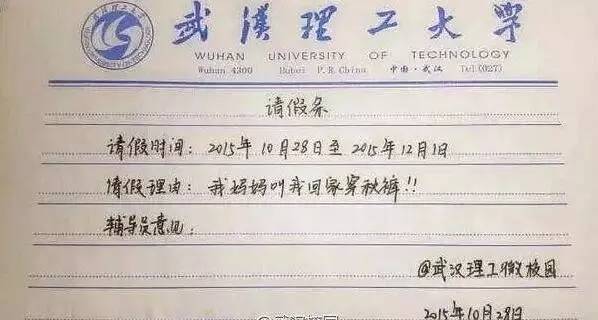 武汉理工大学
WUHAN UNIVERSITY OF TECHNOLOGY
Wuhan 4300 Hubei P.R.China 中国·武汉 Tel(027)
请假条
请假时间：2015年10月28日至2015年12月1日
请假理由：我妈妈叫我回家穿秋裤!!
辅导员意见：
@武汉理工微校园
2015年10月28日